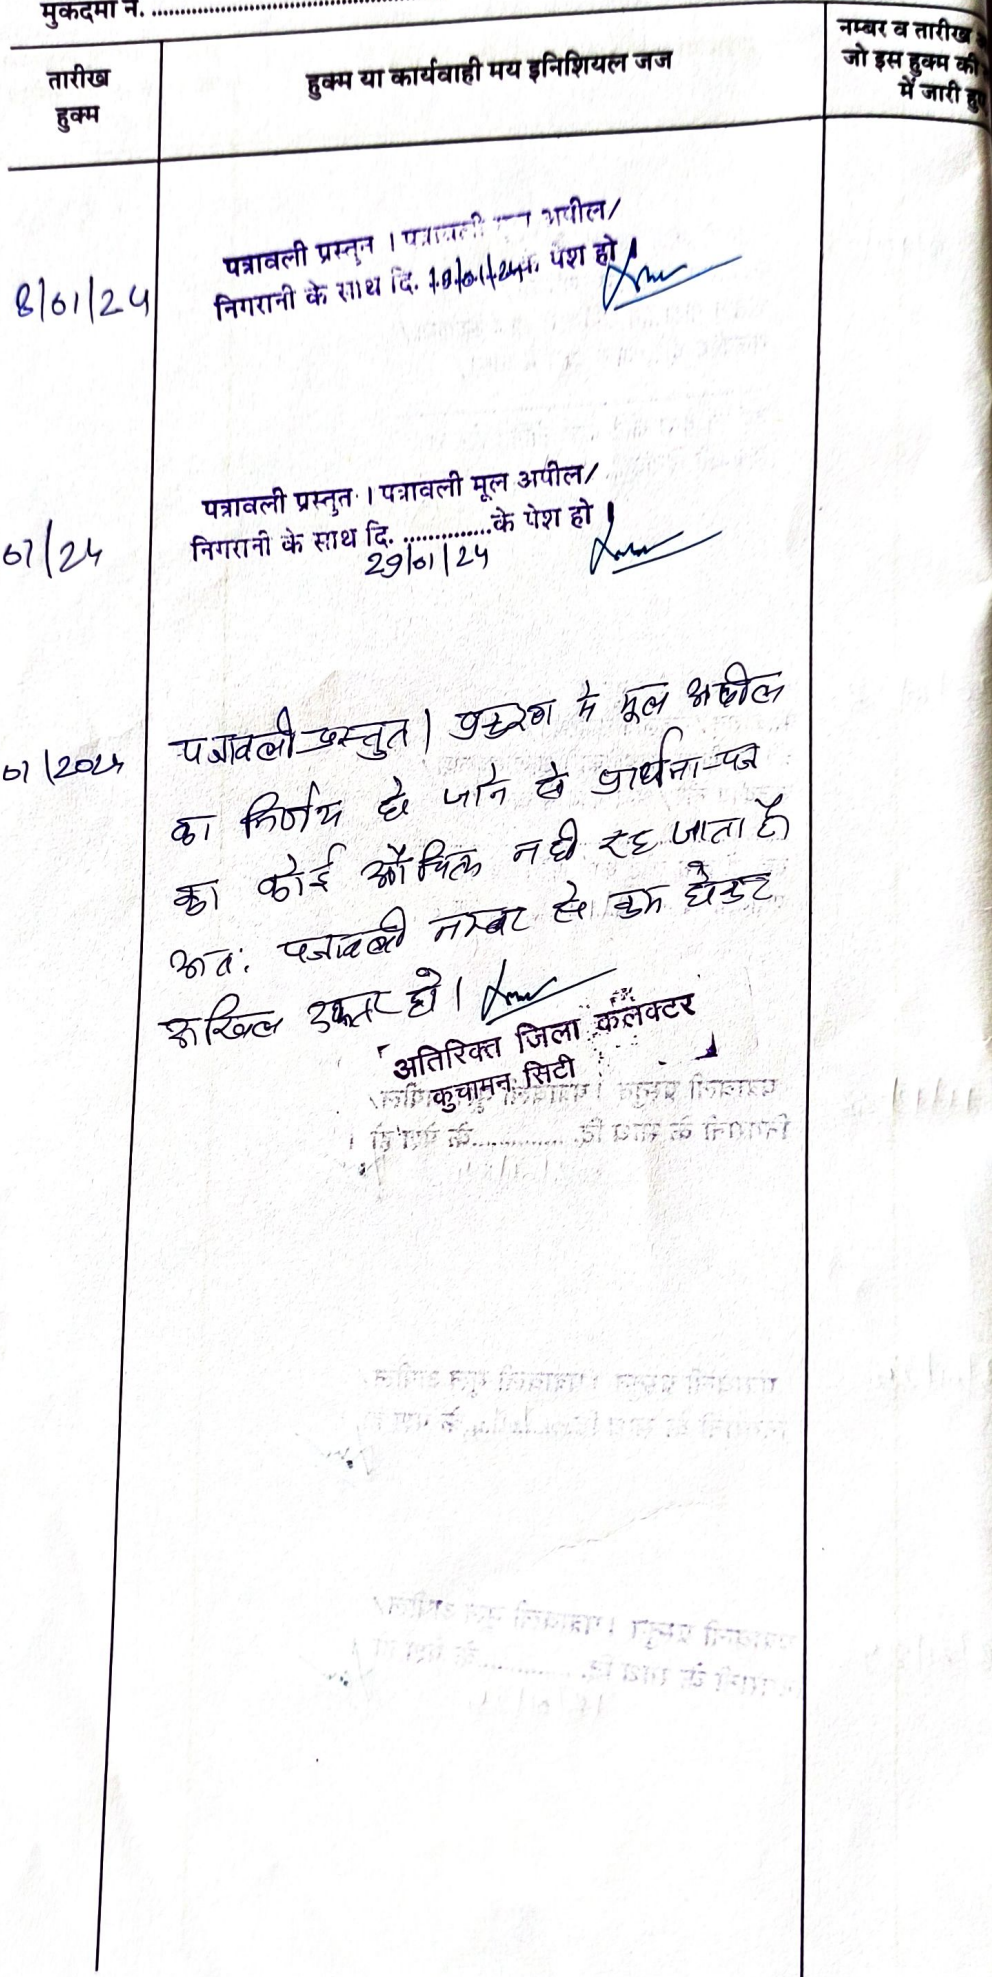 मुकदमा नं. ........................
तारीख
हुक्म
हुक्म या कार्यवाही मय इनिशियल जज
नम्बर व तारीख
जो इस हुक्म की
में जारी हु
8/01/24
पत्रावली प्रस्तुत । पत्रावली मूल अपील/
निगरानी के साथ दि. 19/01/24 के पेश हो ।
01/24
पत्रावली प्रस्तुत । पत्रावली मूल अपील/
निगरानी के साथ दि. ..............के पेश हो ।
29/01/24
01/2024
पत्रावली प्रस्तुत । प्रकरण में मूल अपील
का निर्णय हो जाने से प्रार्थना-पत्र
का कोई औचित्य नही रह जाता है
अतः पत्रावली नम्बर से कम होकर
दाखिल दफ्तर हो ।
अतिरिक्त जिला कलेक्टर
कुचामन सिटी